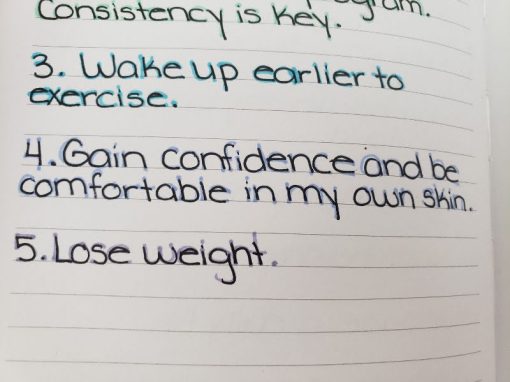 Consistency is key.
3. Wake up earlier to
exercise.
4. Gain confidence and be
comfortable in my own skin.
5. Lose weight.